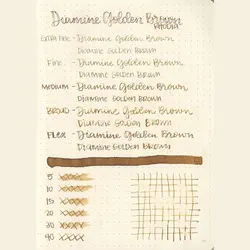 Diamine Golden Brown
Rhodia
Extra Fine - Diamine Golden Brown
Diamine Golden Brown
Fine - Diamine Golden Brown
Diamine Golden Brown
Medium - Diamine Golden Brown
Diamine Golden Brown
Broad - Diamine Golden Brown
Diamine Golden Brown
Flex - Diamine Golden Brown
Diamine Golden Brown
5 xxxxx
10 xxxxx
15 xxxxx
20 xxxxx
30 xxxxx
40 xxxx